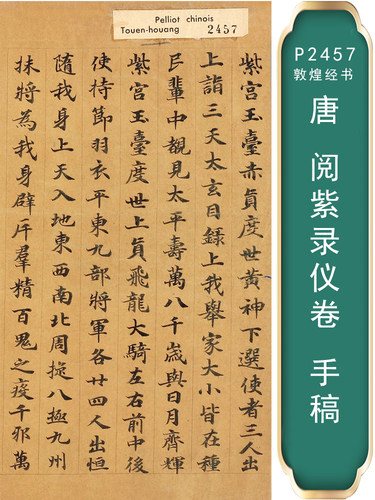 Pelliot chinois
Touen-houang 2457
紫宮玉臺亦真度世黃神下選使者三人出
上詣三天太玄目錄上我舉家大小皆在種
民輩中覩見太平壽萬八千歲與日月齊輝
紫宮玉臺度世上真飛龍大騎左右前中後
使持節羽衣平東九部將軍各廿四人出恒
隨我身上天入地東西南北周旋八極九州
抹將為我身辟斥羣精百鬼之疫千邪萬
P2457
敦煌经书
唐 阅紫录仪卷 手稿